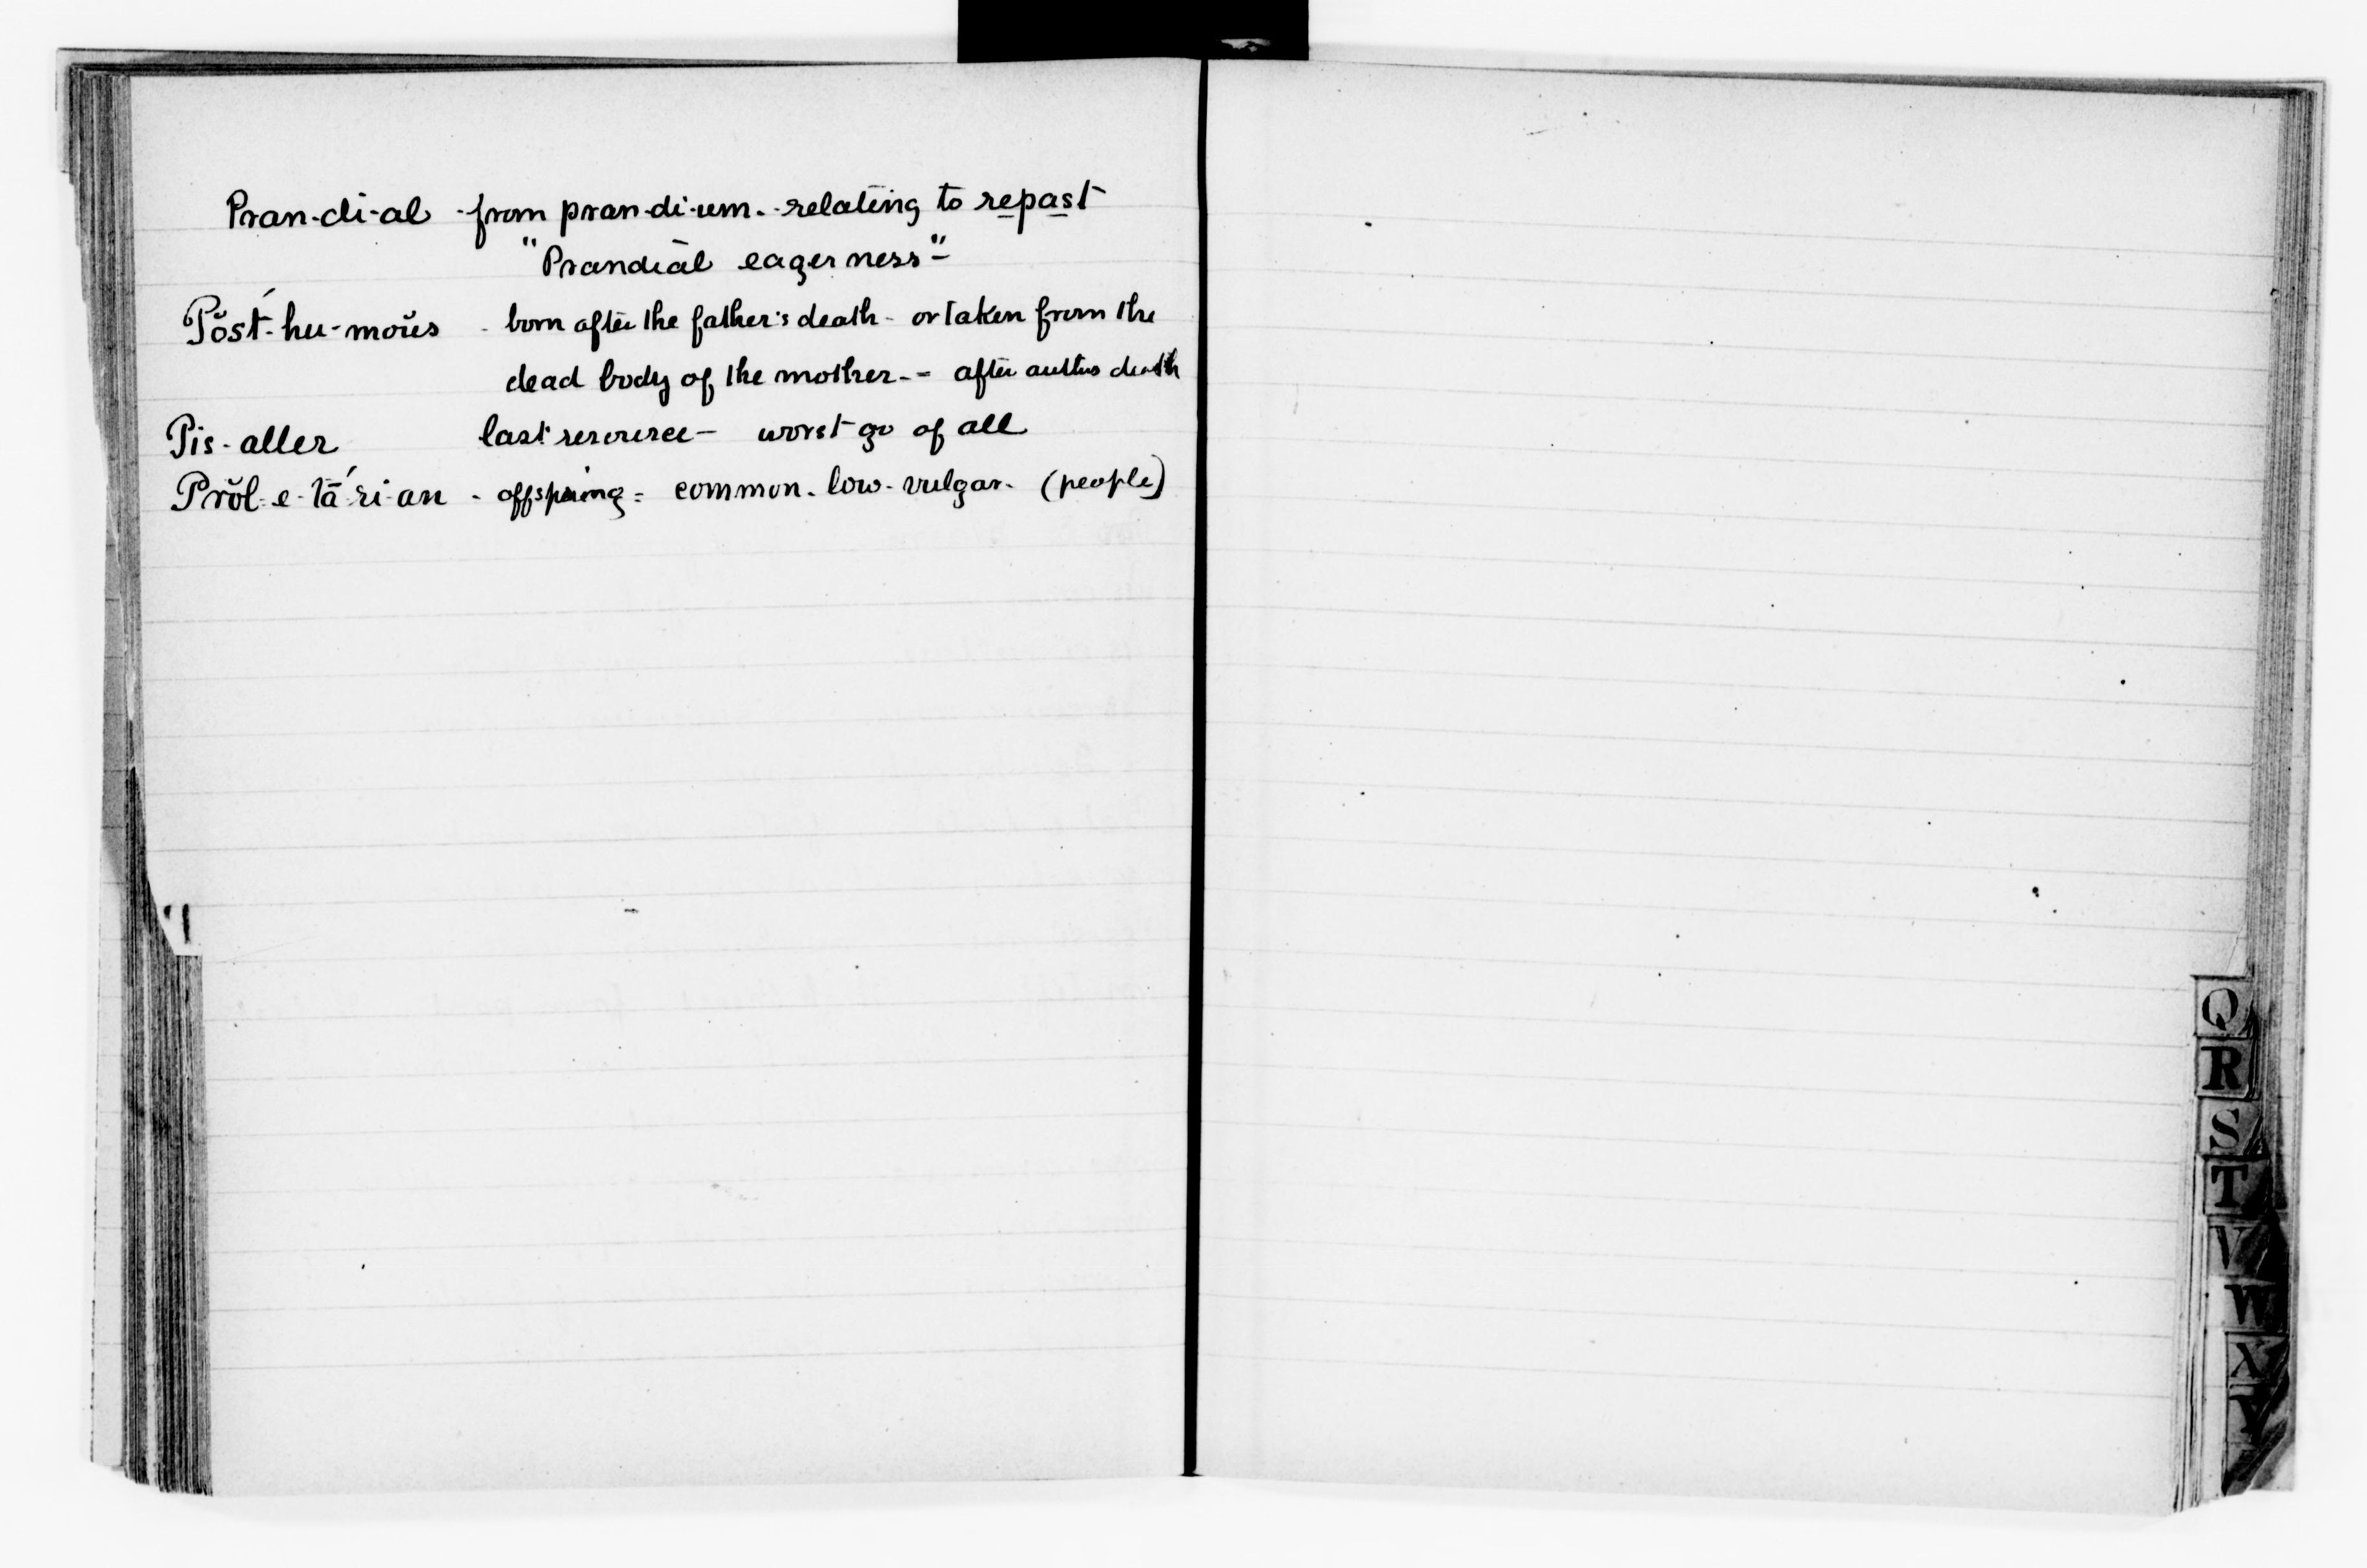 Pran-di-al - from pran-di-um. - relating to repast
"Prandial eagerness" -
Pŏst´-hu-moŭs - born after the father's death - or taken from the
dead body of the mother - - after authos death
Pis-aller last resource - worst go of all
Prŏl-e-tā´ri-an - offspring = common. low- vulgar. (people)
Q
R
S
T
V
W
X
Y